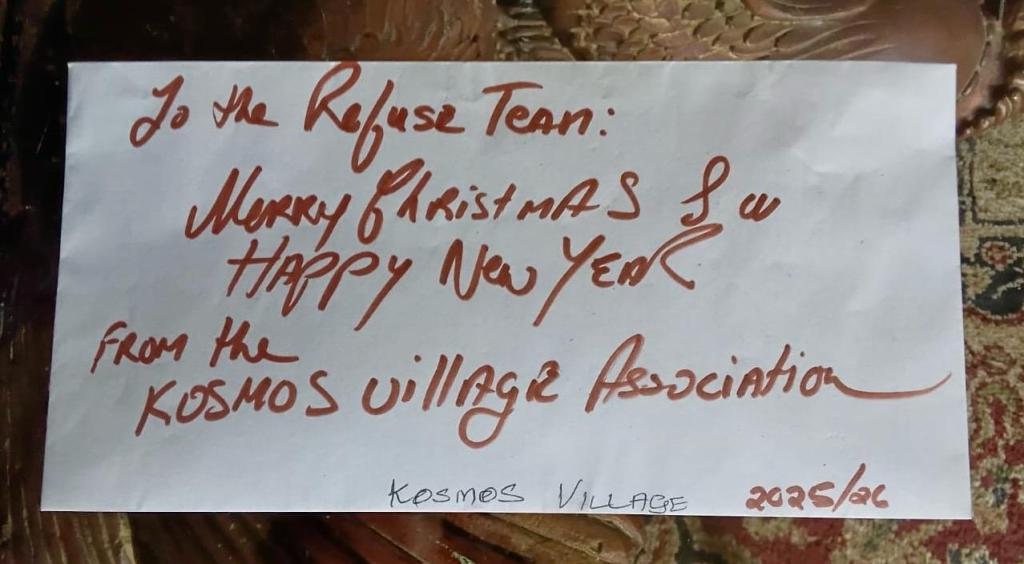 To the Refuse Team:
Merry Christmas & a
Happy New Year
From the
Kosmos Village Association
KOSMOS VILLAGE 2025/26